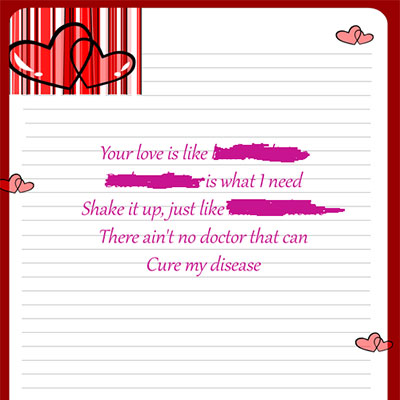 Your love is like
is what I need
Shake it up, just like
There ain't no doctor that can
Cure my disease